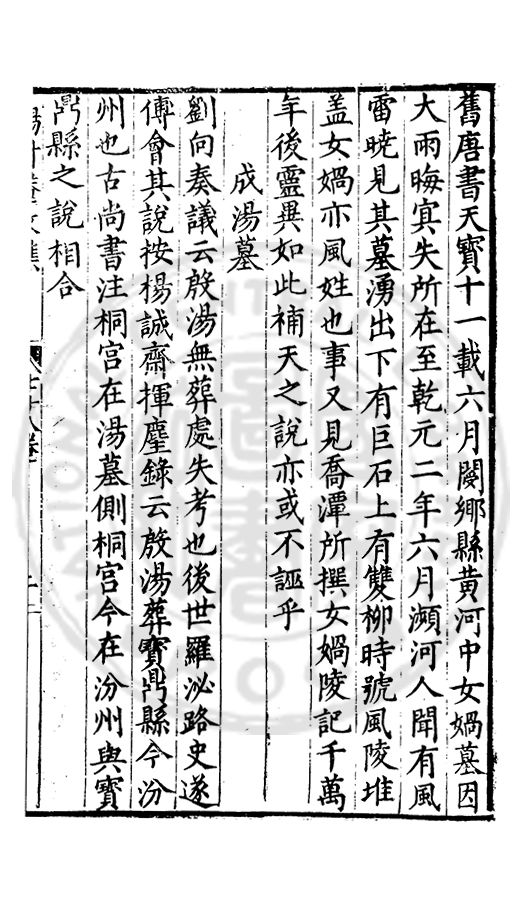 舊唐書天寶十一載六月閿鄉縣黄河中女媧墓因
大雨晦㝠失所在至乾元二年六月瀕河人聞有風
雷曉見其墓湧出下有巨石上有雙柳時號風陵堆
盖女媧亦風姓也事又見喬潭所撰女媧陵記千萬
年後靈異如此補天之說亦或不誣乎
成湯墓
劉向奏議云殷湯無葬處失考也後世羅泌路史遂
傅會其說按楊誠齋揮麈錄云殷湯葬寶鼎縣今汾
州也古尚書注桐宫在湯墓側桐宫今在汾州與寶
鼎縣之說相合